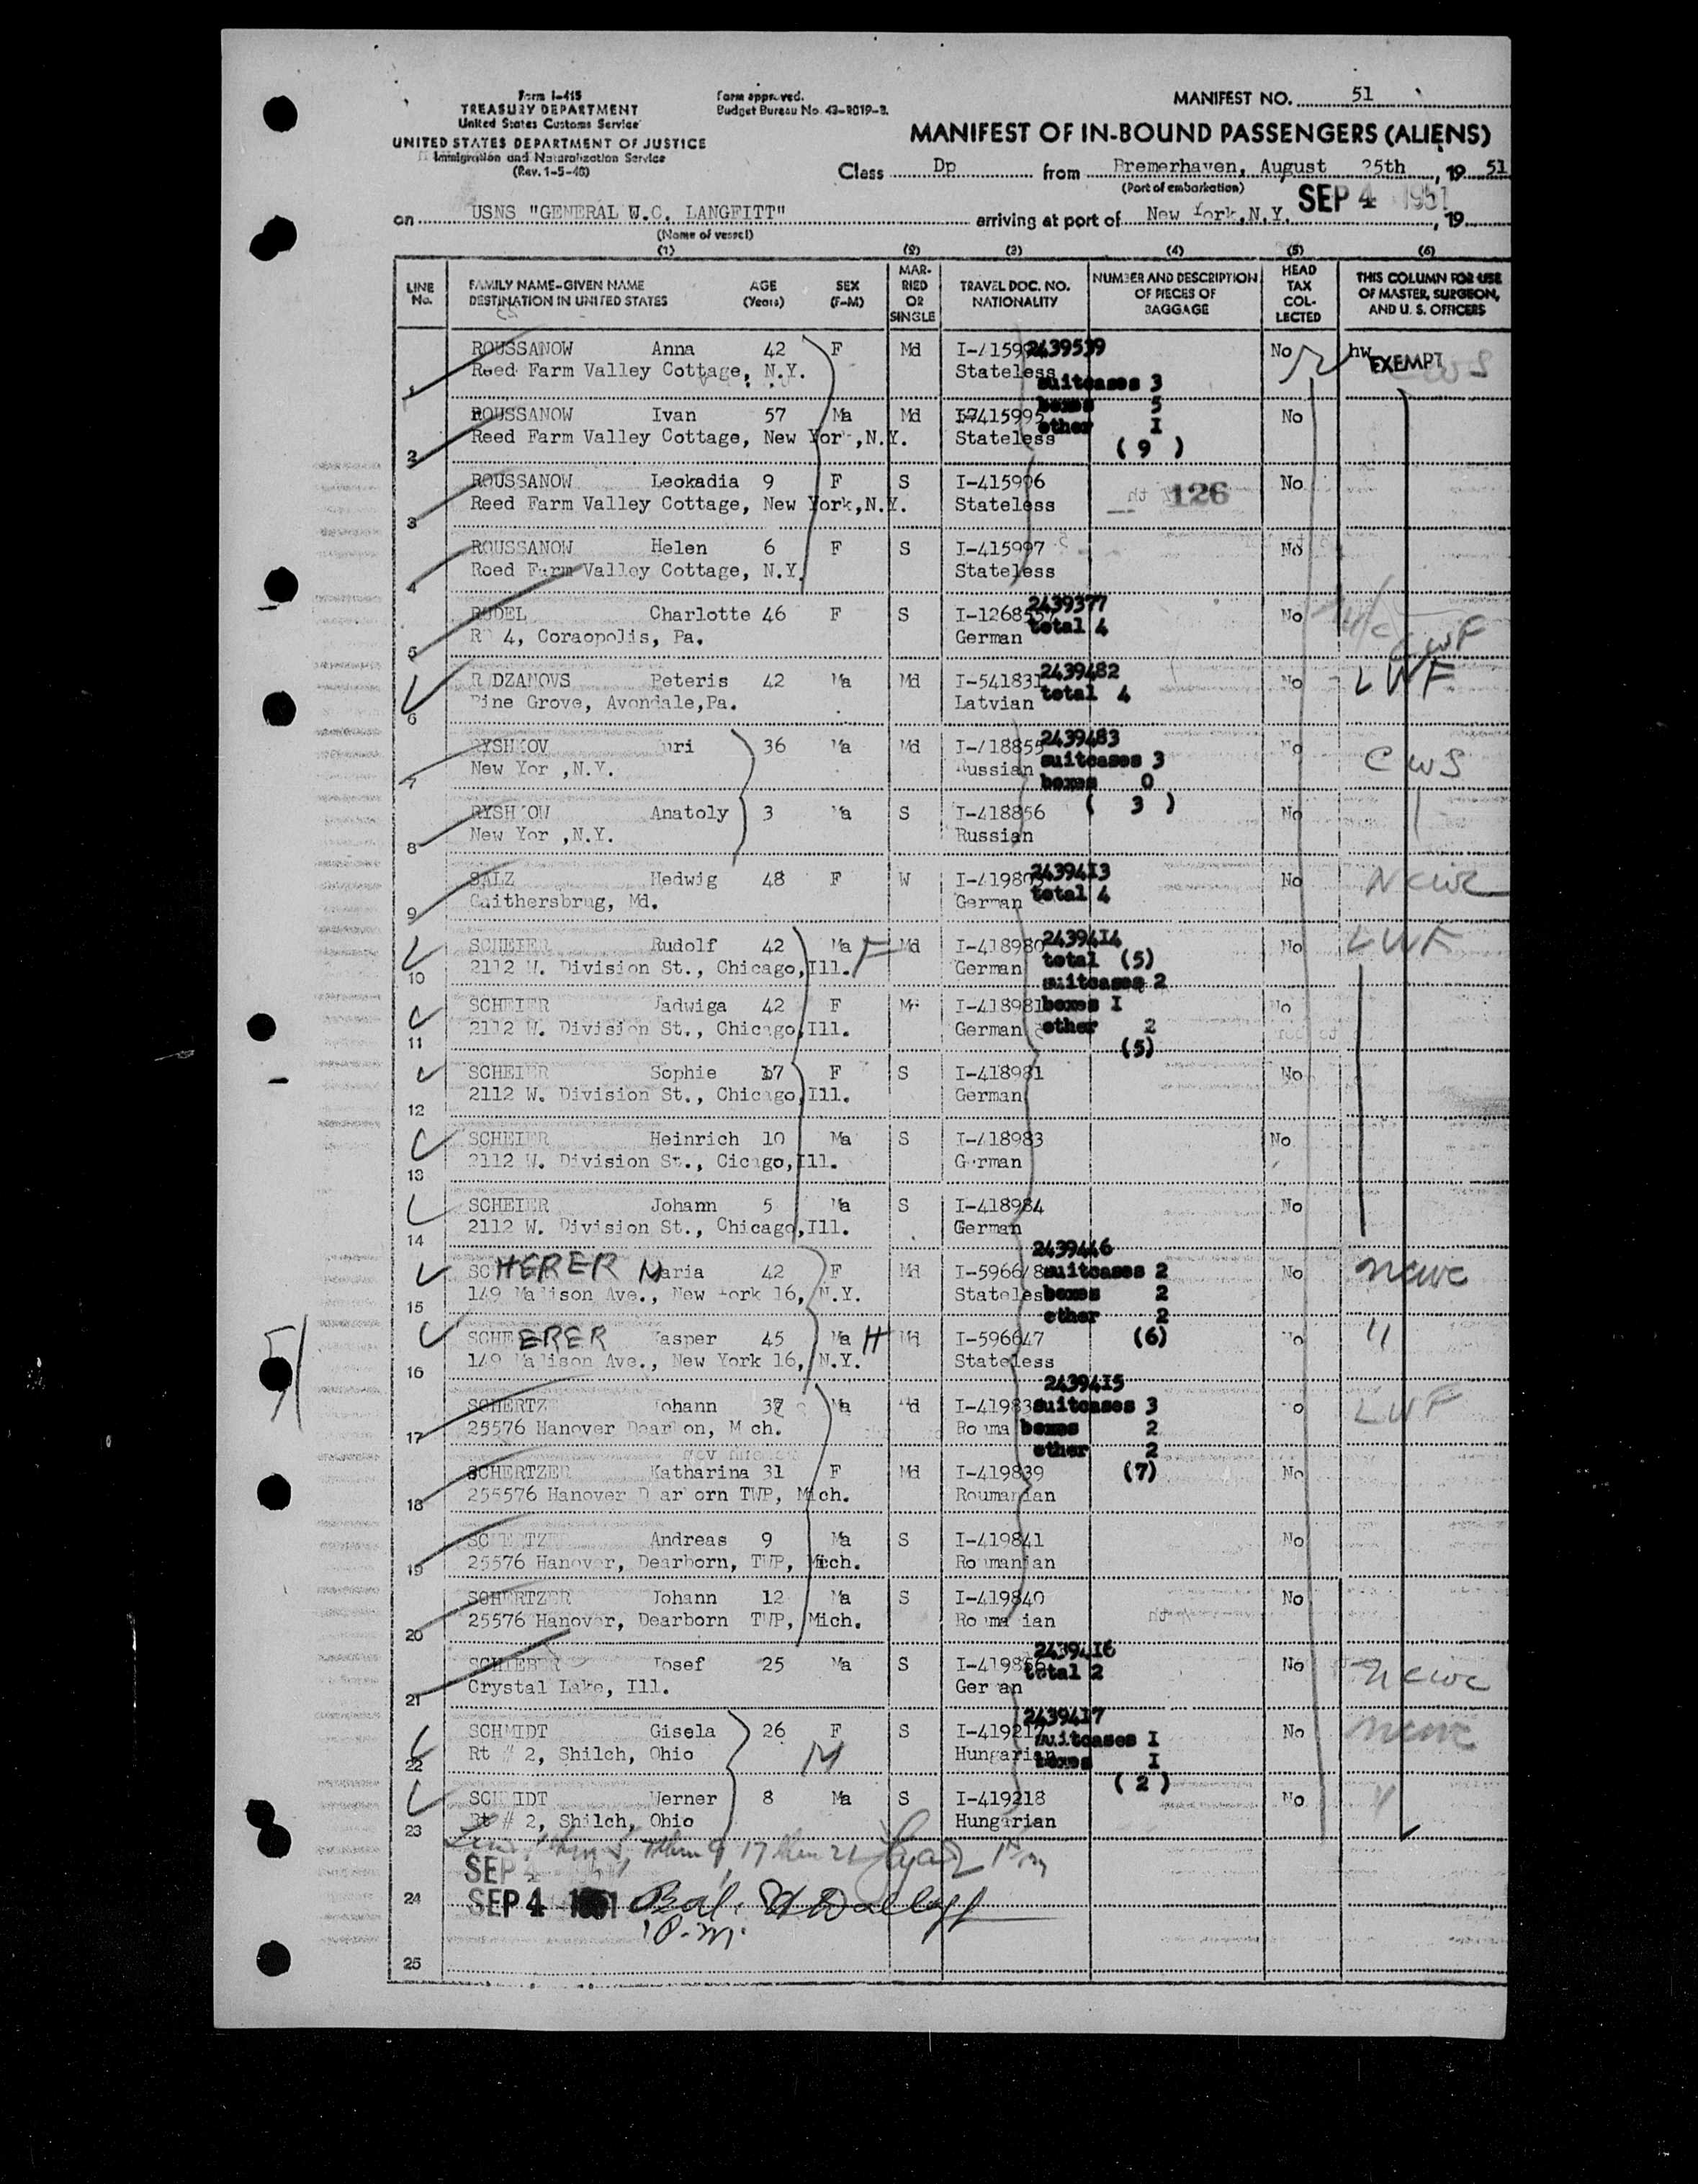 Form I-415
TREASURY DEPARTMENT
United States Customs Service
UNITED STATES DEPARTMENT OF JUSTICE
Immigration and Naturalization Service
(Rev. 1-5-48)
Form approved.
Budget Bureau No. 43-R019-3.
MANIFEST NO. 51
MANIFEST OF IN-BOUND PASSENGERS (ALIENS)
Class Dp from Bremerhaven, August 25th, 19 51
(Port of embarkation)
SEP 4 1951
on USNS "GENERAL W.C. LANGFITT" arriving at port of New York, N.Y. , 19
(Name of vessel)
(1) (2) (3) (4) (5) (6)
LINE No. FAMILY NAME-GIVEN NAME DESTINATION IN UNITED STATES AGE (Years) SEX (F-M) MARRIED OR SINGLE TRAVEL DOC. NO. NATIONALITY NUMBER AND DESCRIPTION OF PIECES OF BAGGAGE HEAD TAX COLLECTED THIS COLUMN FOR USE OF MASTER, SURGEON, AND U. S. OFFICERS
1 ROUSSANOW Anna 42 F Md 2439539 No hw EXEMPT CWS
Reed Farm Valley Cottage, N.Y. Stateless suitcases 3
boxes 5
2 ROUSSANOW Ivan 57 Ma Md I-415995 other I No
Reed Farm Valley Cottage, New Yor ,N.Y. Stateless (9)
3 ROUSSANOW Leokadia 9 F S I-415996 126 No
Reed Farm Valley Cottage, New York,N.Y. Stateless
4 ROUSSANOW Helen 6 F S I-415997 No
Reed Farm Valley Cottage, N.Y. Stateless
5 RUDEL Charlotte 46 F S I-12685 2439377 No LWF
R 4, Coraopolis, Pa. German total 4
6 R DZANOVS Peteris 42 Ma Md I-541831 2439482 No LWF
Pine Grove, Avondale,Pa. Latvian total 4
7 RYSHKOV uri 36 Ma Md I-418855 2439483 No CWS
New Yor ,N.Y. Russian suitcases 3
boxes 0
8 RYSHKOW Anatoly 3 Ma S I-418856 (3) No
New Yor ,N.Y. Russian
9 SALZ Hedwig 48 F W I-41980 2439413 No NCWC
Gaithersbrug, Md. German total 4
10 SCHEIER Rudolf 42 Ma F Md I-418980 2439414 No LWF
2112 W. Division St., Chicago,Ill. German total (5)
suitcases 2
11 SCHEIER Jadwiga 42 F Md I-418981 boxes I No
2112 W. Division St., Chicago,Ill. German other 2
(5)
12 SCHEIER Sophie 17 F S I-418981 No
2112 W. Division St., Chicago,Ill. German
13 SCHEIER Heinrich 10 Ma S I-418983 No
2112 W. Division St., Cicago,Ill. German
14 SCHEIER Johann 5 Ma S I-418984 No
2112 W. Division St., Chicago,Ill. German
2439446
15 SCHERER Maria 42 F Md I-596648 suitcases 2 No NCWC
149 Madison Ave., New York 16, N.Y. Stateless boxes 2
other 2
16 SCHEERER Kasper 45 Ma H Md I-596647 (6) No "
149 Madison Ave., New York 16, N.Y. Stateless
51
2439415
17 SCHERTZ Johann Ma Md I-41983 suitcases 3 No LWF
25576 Hanover Dearbon, M ch. Rouma boxes 2
other 2
18 SCHERTZER Katharina 31 F Md I-419839 (7) No
255576 Hanover D ar orn TWP, Mich. Roumanian
19 SCHERTZE Andreas 9 Ma S I-419841 No
25576 Hanover, Dearborn, TWP, Mich. Roumanian
20 SCHERTZER Johann 12 Ma S I-419840 No
25576 Hanover, Dearborn TWP, Mich. Rouma ian
2439416
21 SCHIEBER Josef 25 Ma S I-419866 total 2 No NCWC
Crystal Lake, Ill. Ger an
2439417
22 SCHMIDT Gisela 26 F S I-419217 suitcases I No NCWC
Rt # 2, Shilch, Ohio M Hungarian boxes I
(2)
23 SCHMIDT Werner 8 Ma S I-419218 No
Rt # 2, Shilch, Ohio Hungarian
SEP 4
24 SEP 4 1951 Bal.
P.M.
25